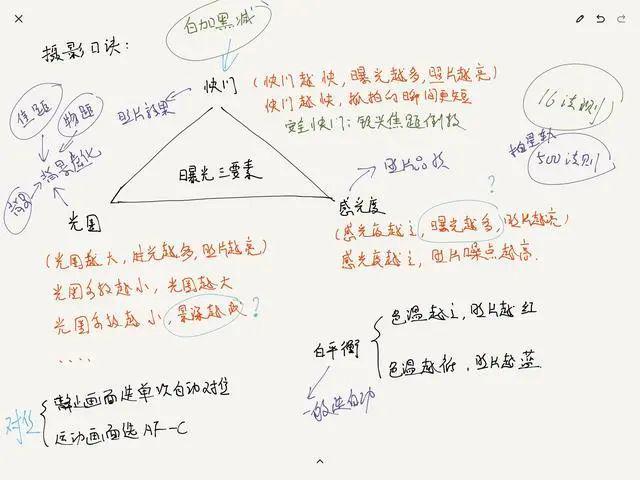 白加黑减
摄影口诀:
快门
(快门越快,曝光越多,照片越亮)
快门越快,抓拍的瞬间更短
安全快门:镜头焦距倒数
照片效果
焦距
物距
背景虚化
曝光三要素
照片品质
16法则
拍星轨
500法则
光圈
感光度
(光圈越大,进光越多,照片越亮)
光圈系数越小,光圈越大
光圈系数越小,景深越浅?
....
?
(感光度越高,曝光越多,照片越亮)
感光度越高,照片噪点越高.
白平衡
色温越高,照片越红
色温越低,照片越蓝
一般选自动
对焦
静止画面选单次自动对焦
运动画面选AF-C